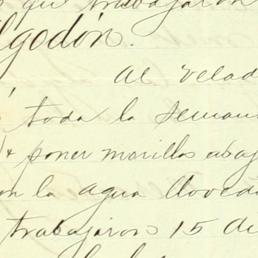 que trabajaron
lgodón.
Al Velad
toda la Seman
+ poner morillos abaj
on la agua lloved
trabajaron 15 di